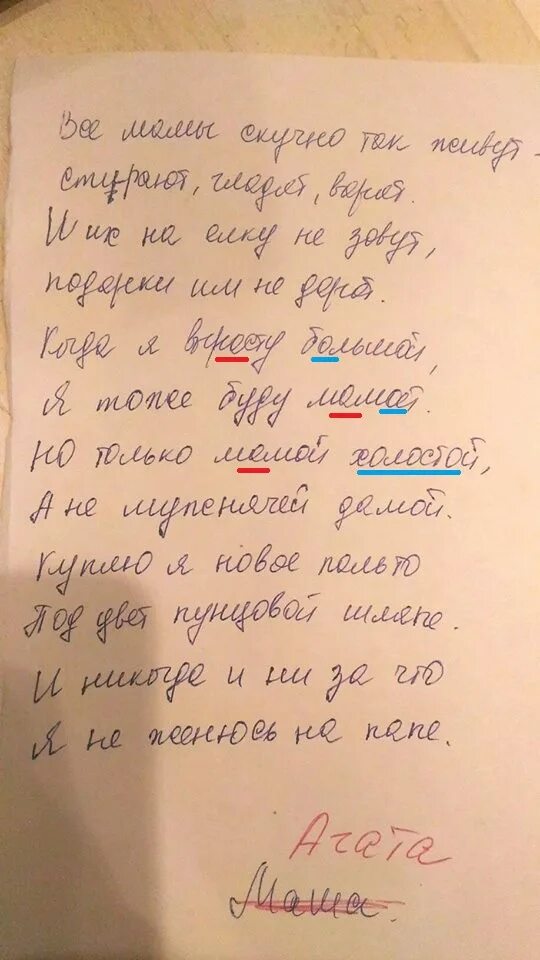 Все мамы скучно так живут -
стирают, гладят, варят.
И их на елку не зовут,
подарки им не дарят.
Когда я вырасту большой,
Я тоже буду мамой.
Но только мамой холостой,
А не мупснячей дамой.
Куплю я новое пальто
Под цвет пунцовой шляпе.
И никогда и ни за что
Я не женюсь на папе.
Агата
Маша.